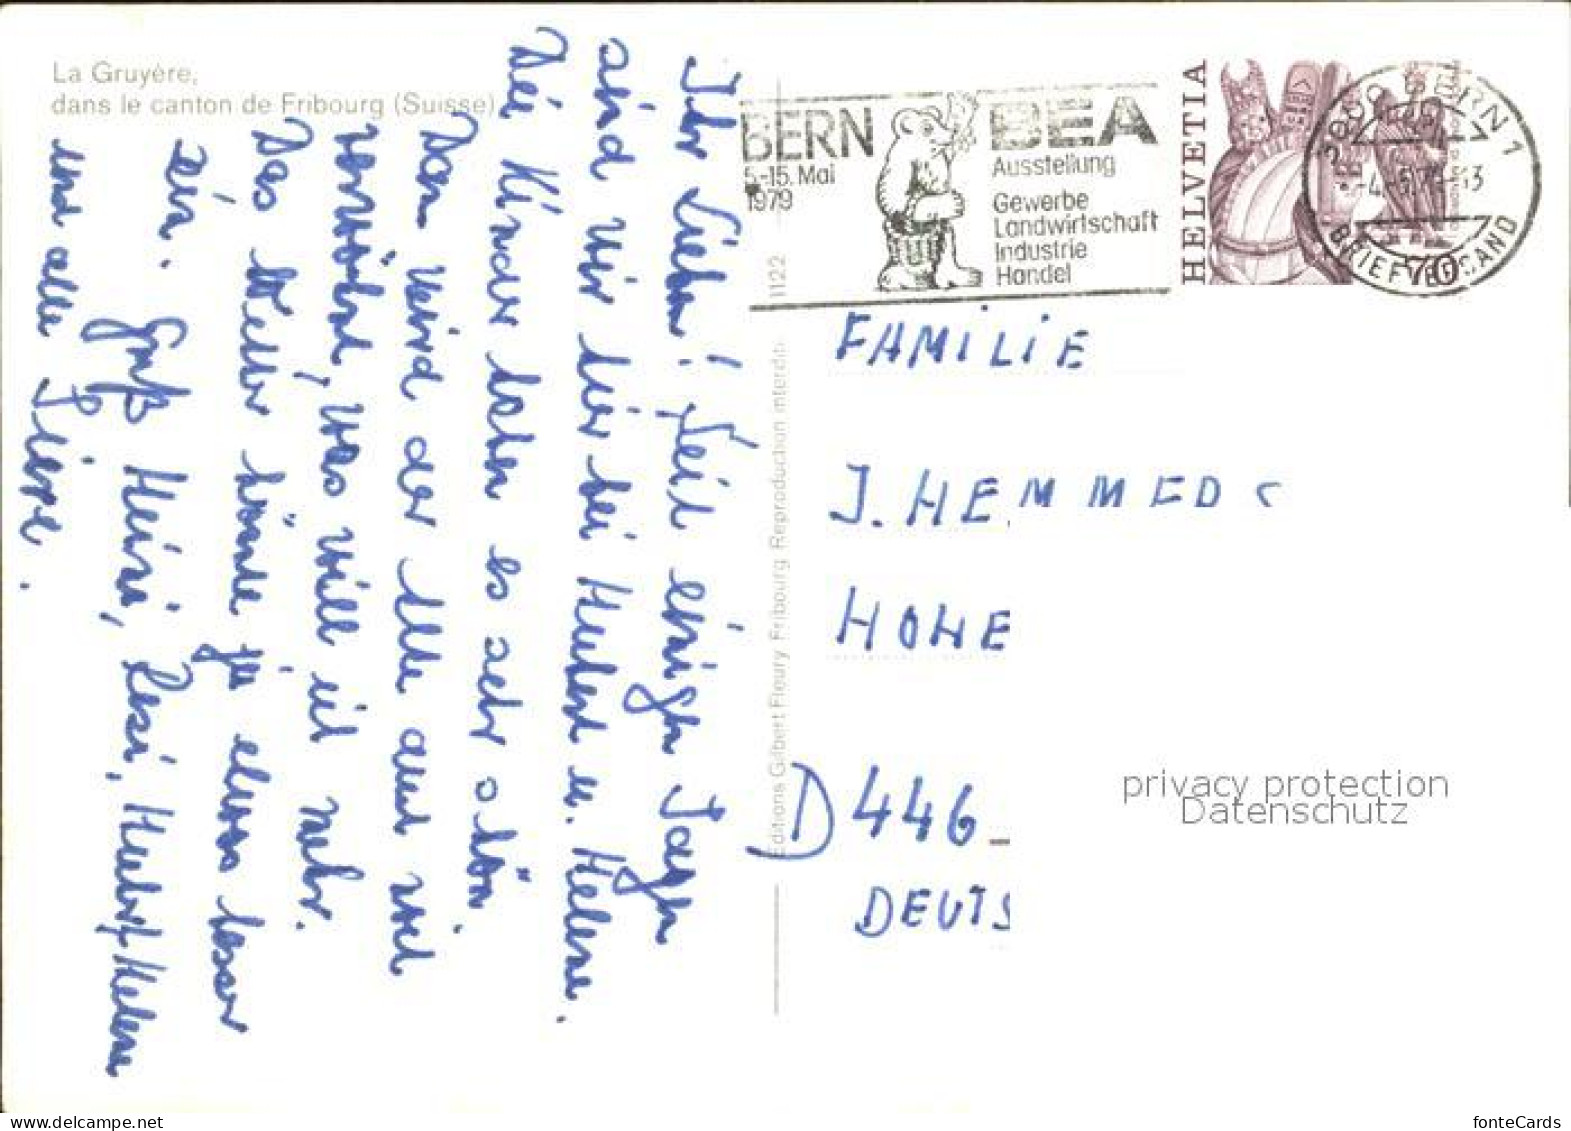 La Gruyère,
dans le canton de Fribourg (Suisse)
Ihr Lieben! Seit einigen Tagen
sind wir hier bei Hubert u. Helene.
Die Kinder haben es sehr schön.
Dann wird der Ulle auch viel
verwöhnt, was will ich mehr.
Das Wetter könnte ja etwas besser
sein. Gruß Heini, Resi, Hubert, Helene
und alle
Editions Gilbert Fleury Fribourg Reproduction interdite 1122
BERN
5.-15. Mai
1979
BEA
Ausstellung
Gewerbe
Landwirtschaft
Industrie
Handel
HELVETIA
70
BERN 1
BRIEFVERSAND
FAMILIE
J. HEMMED
HOHE
D 446
DEUTS
privacy protection
Datenschutz
fonteCards